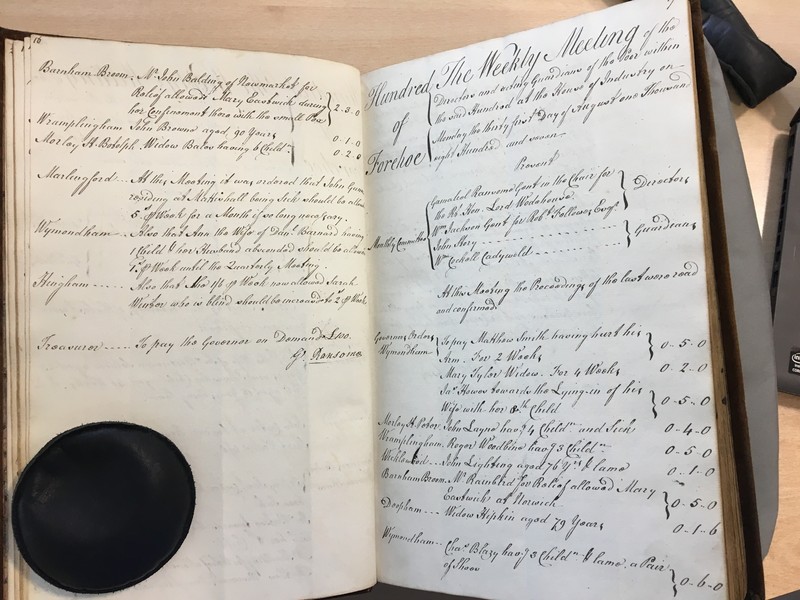 16
Barnham Broom - Mr. John Balding of Newmarket for
Relief allowed Mary Eastwick during
her Confinement there with the small Pox } 2-3-0
Wramplingham John Browne aged 90 Years 0-1-0
Morley St. Botolph Widow Bales having 6 Childn. 0-2-0
Marlingford --- At this Meeting it was ordered that John
residing at Mattishall being Sick should be allowed
5s. ⅌ Week for a Month if so long necessary.
Wymondham --- Also that Ann the Wife of Danl. Barnard having
1 Child & her Husband absconded should be allowed
1s. ⅌ Week until the Quarterly Meeting.
Hingham ---- Also that the 1/6 ⅌ Week now allowed Sarah
Winter who is blind should be increased to 2s. ⅌ Week
Treasurer ---- To pay the Governor on Demand £100.
Gl. Ransome
Hundred of Forehoe
The Weekly Meeting of the
Directors and acting Guardians of the Poor within
the said Hundred at the House of Industry on
Monday the thirty first Day of August one Thousand
eight Hundred and seven
Present
Monthly Committee
Gamaliel Ransome Gent in the Chair for
the Rt. Hon. Lord Wodehouse
Wm. Jackson Gent for Robt. Fellowes Esqr. } Directors
John Story
Wm. Cadywold } Guardians
At this Meeting the Proceedings of the last were read
and confirmed
Governors Orders
Wymondham
To pay Matthew Smith having hurt his
Arm. For 2 Weeks } 0-5-0
Mary Tylor Widow. For 4 Weeks 0-2-0
Jas. Howes towards the Lying-in of his
Wife with her 8th. Child } 0-5-0
Morley St. Peter. John Layne havg. 4 Childn. and Sick 0-4-0
Wramplingham. Roger Woodbine havg. 3 Childn. 0-5-0
Wicklewood -- John Lighting aged 76 Yrs. & lame 0-1-0
Barnham Broom. Mr. Rainbird for Relief allowed Mary
Eastwick at Norwich } 0-5-0
Deopham --- Widow Hipkin aged 79 Years 0-1-6
Wymondham --- Chas. Blazy havg. 3 Childn. & lame a Pair
of Shoes } 0-6-0